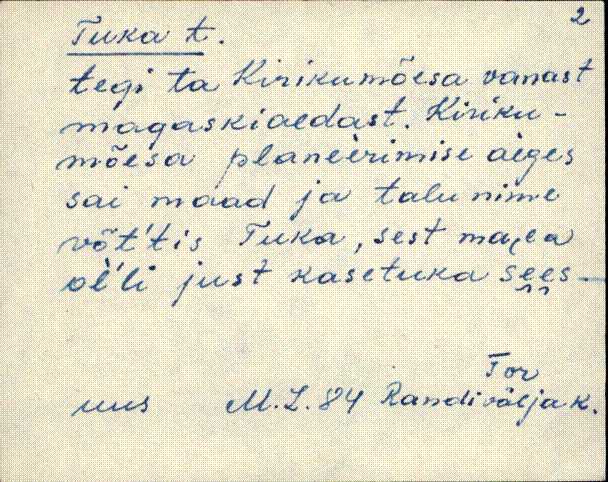 2
Tuka t.
tegi ta Kirikumõesa vanast
magaskiaedast. Kiriku-
mõesa planeerimise aeges
sai maad ja talu nime
võt't'is Tuka, sest
ol'li just kasetuka sees
Tor
uus M.L. 84 Randivälja k.